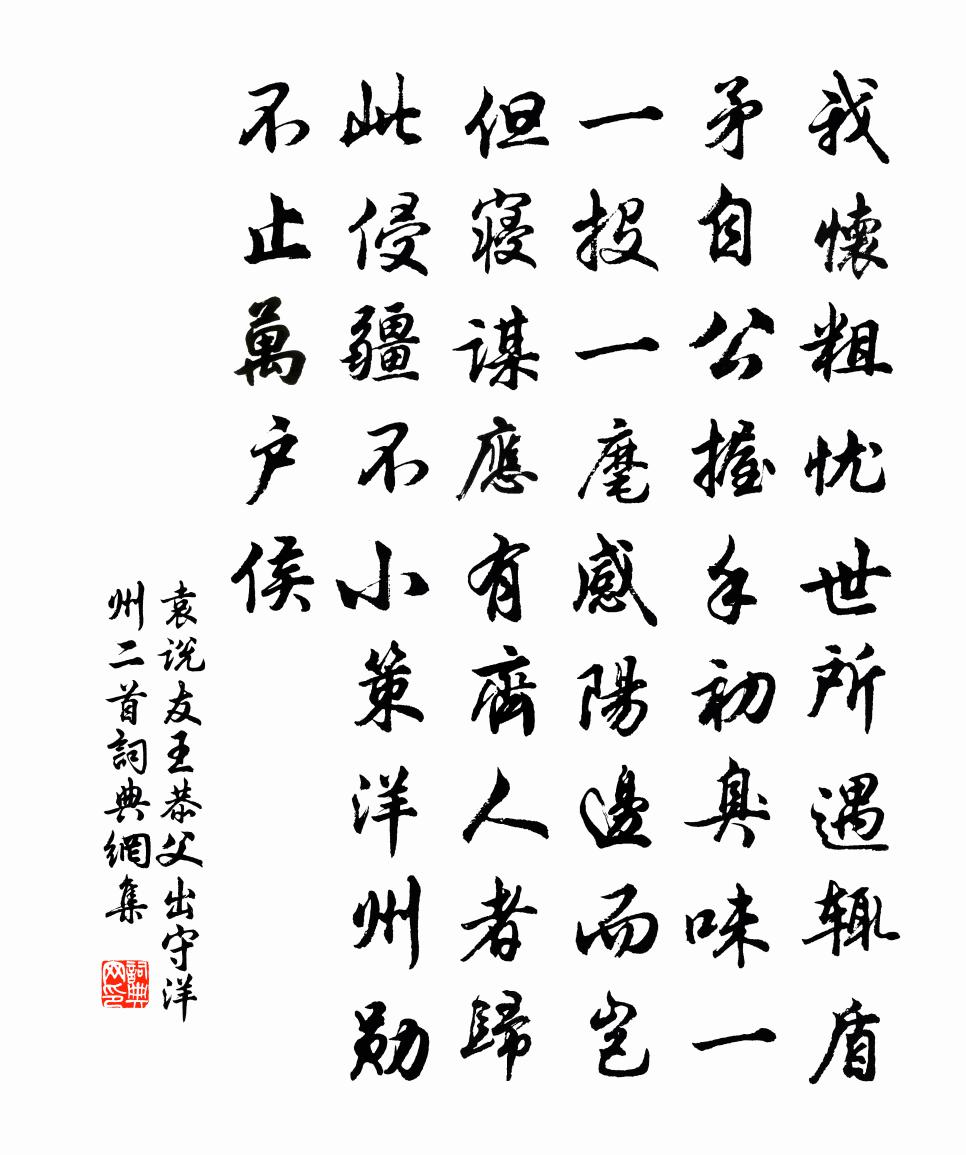 我懷粗忧世所遇辄盾
矛自公握手初臭味一
一投一麾感陽邊而岂
但寝謀應有齊人者歸
此侵疆不小策洋州勋
不止萬户侯
袁说友王恭父出守洋
州二首詞典網集
詞典
网印